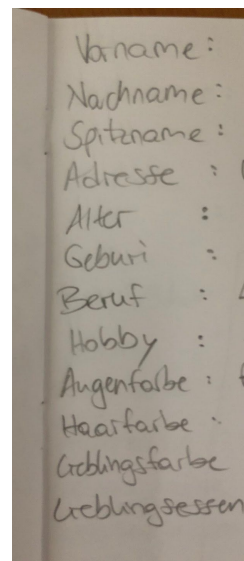 Vorname :
Nachname :
Spitzname :
Adresse :
Alter :
Geburi :
Beruf :
Hobby :
Augenfarbe :
Haarfarbe :
Lieblingsfarbe
Lieblingsessen